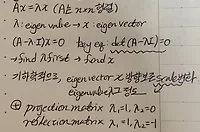 Ax = λx (A는 n×n행렬)
λ: eigen value → x: eigen vector
(A-λI)x=0 key eq: det(A-λI)=0
→ find λ first → find x
기하학적으로, eigenvector x 방향으로 scale변화
eigenvalue λ 그 정도
⊕ projection matrix λ₁=1, λ₂=0
reflection matrix λ₁=1, λ₂=-1